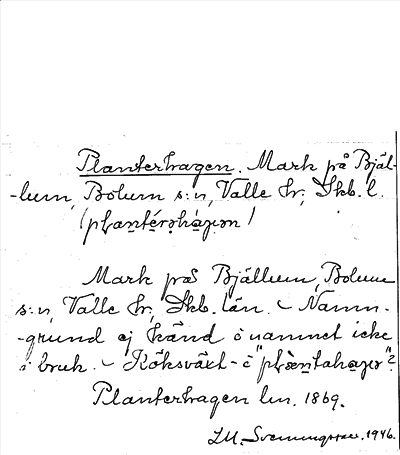 Planterhagen. Mark på Bjäl-
-lum, Bolum s:n, Valle hr, Skb. l.
(plantérhagen)
Mark på Bjällum, Bolum
s:n, Valle hr, Skb. län. – Namn-
-grund ej känd o namnet icke
i bruk. – Köksväxt- o
Planterhagen lm. 1869.
1946.